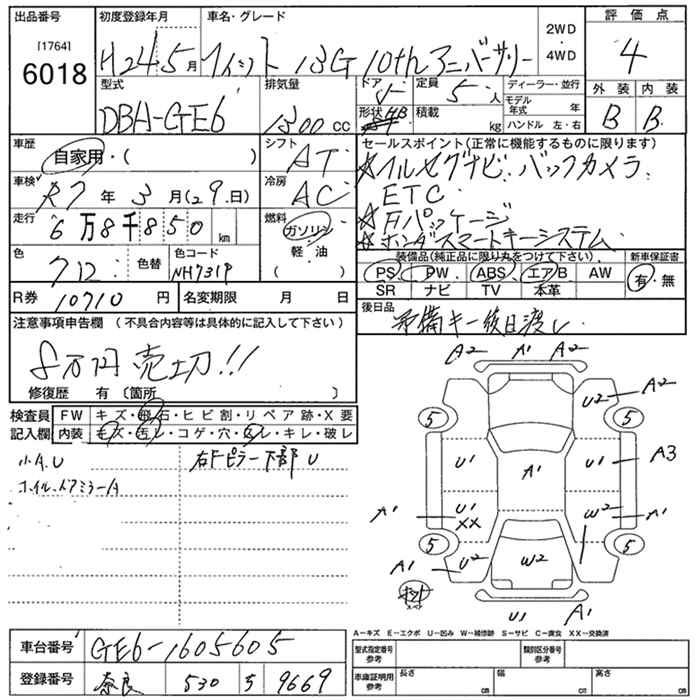 出品番号 初度登録年月 車名・グレード 2WD ・ 4WD 評価点
[1764] 6018 H24年5月 フィット 13G 10thアニバーサリー 4
型式 排気量 ドア 定員 ディーラー・並行 外装 内装
DBA-GE6 1300cc 5 5人 モデル年式 年 B B
形状 HB 積載 kg ハンドル 左・右
車歴 シフト セールスポイント(正常に機能するものに限ります)
自家用・( ) AT ☆フルセグナビ バックカメラ
車検 冷房 ETC
R7年3月(29日) AC ☆Fパッケージ
走行 燃料 ☆ホンダスマートキーシステム
6万8千850km ガソリン 軽・油
色 色替 色コード 装備品(純正品に限り丸をつけて下さい) 新車保証書
クロ NH731P PS PW ABS エアB AW 有・無
SR ナビ TV 本革
R券 10710円 名変期限 月 日 後日品
予備キー後日渡し
注意事項申告欄(不具合内容等は具体的に記入して下さい)
8万円売切!!
修復歴 有〔箇所 〕
検査員 FW キズ・飛石・ヒビ割・リペア跡・X要
記入欄 内装 キズ・汚レ・コゲ・穴・スレ・キレ・破レ
小A.U 右Fピラー下部U
ホイル、ドアミラーA
A2 A1 A2
U2 A2
5 5
U1 A1 U1 A3
A1 U1 XX W2 A1
5 5
A1 U2 W2
U1 A1
A=キズ E=エクボ U=凹み W=補修跡 S=サビ C=腐食 XX=交換済
車台番号 GE6-1605605 型式指定番号 参考 類別区分番号 参考
登録番号 奈良 530 ち 9669 車庫証明用 参考 長さ cm 幅 cm 高さ cm